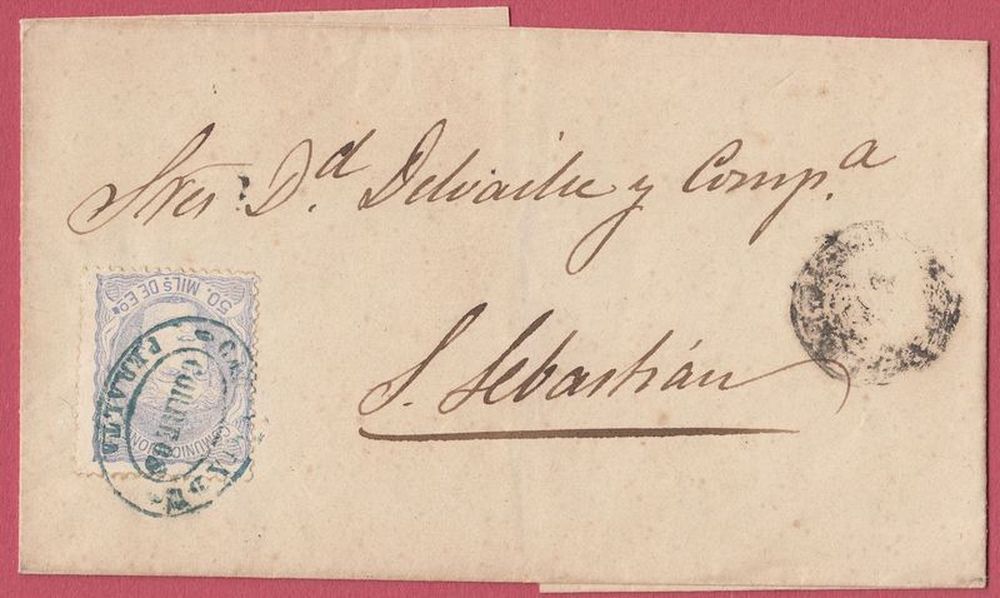 Sres D.d Delvaille y Comp.a
S. Sebastián
50. MILS DE EO.
COMUNICACION
PERALTA
CORREOS